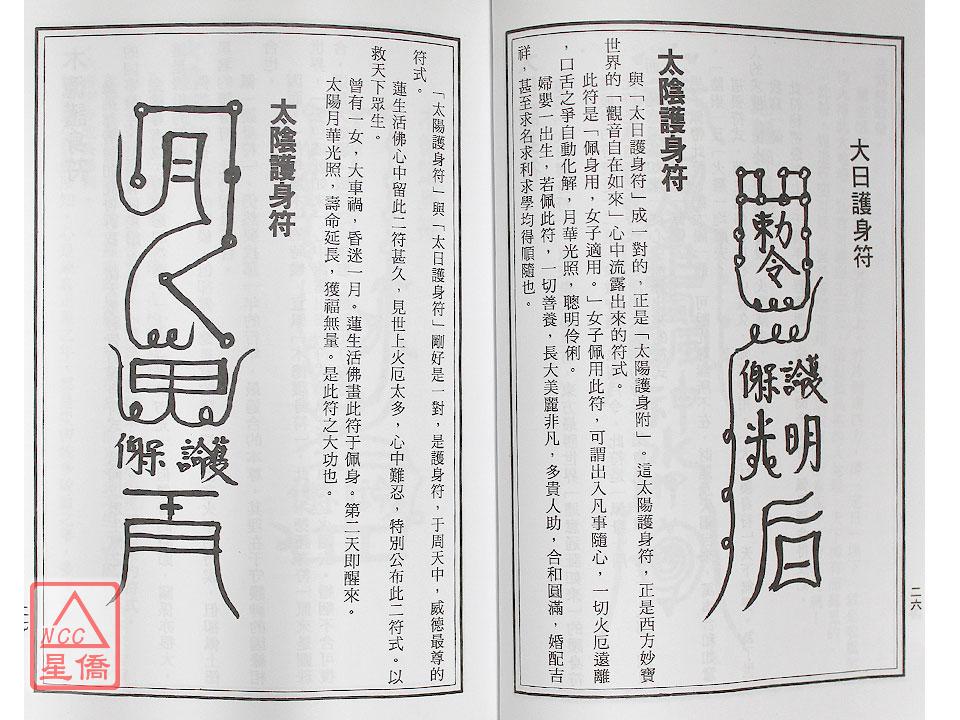 大日護身符
勅令
護保
明光
二六
太陰護身符
與「太日護身符」成一對的，正是「太陽護身附」。這太陽護身符，正是西方妙寶
世界的「觀音自在如來」心中流露出來的符式。
此符是「佩身用，女子適用。」女子佩用此符，可謂出入凡事隨心，一切火厄遠離
，口舌之爭自動化解，月華光照，聰明伶俐。
婦嬰一出生，若佩此符，一切善養，長大美麗非凡，多貴人助，合和圓滿，婚配吉
祥，甚至求名求利求學均得順隨也。
「太陽護身符」與「太日護身符」剛好是一對，是護身符，于周天中，威德最尊的
符式。
蓮生活佛心中留此二符甚久，見世上火厄太多，心中難忍，特別公布此二符式。以
救天下眾生。
曾有一女，大車禍，昏迷一月。蓮生活佛畫此符于佩身。第二天即醒來。
太陽月華光照，壽命延長，獲福無量。是此符之大功也。
太陰護身符
護保
NCC
星僑